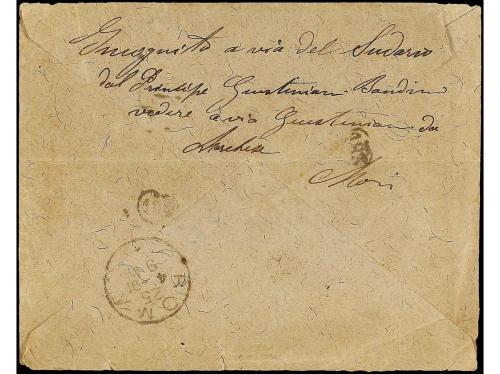 a via del Sudario
dal Principe Giustiniani Bandini
vedere a via Giustiniani da
Marchese
Mori
ROMA
25
4